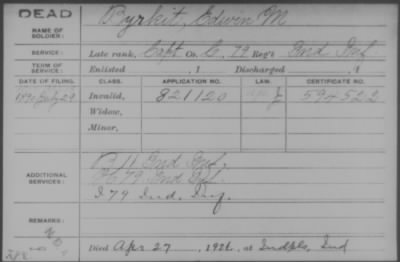 DEAD
NAME OF SOLDIER: Byrkit, Edwin M
SERVICE: Late rank, Capt Co. C, 79 Reg't Ind Inf
TERM OF SERVICE: Enlisted , 1 Discharged , 1
DATE OF FILING. CLASS. APPLICATION NO. LAW. CERTIFICATE NO.
1890 July 29 Invalid, 821120 594522
Widow,
Minor,
ADDITIONAL SERVICES: B 11 Ind Inf,
79 Ind Inf,
I 79 Ind. Inf.
REMARKS:
Died Apr 27, 1926, at Indpls, Ind